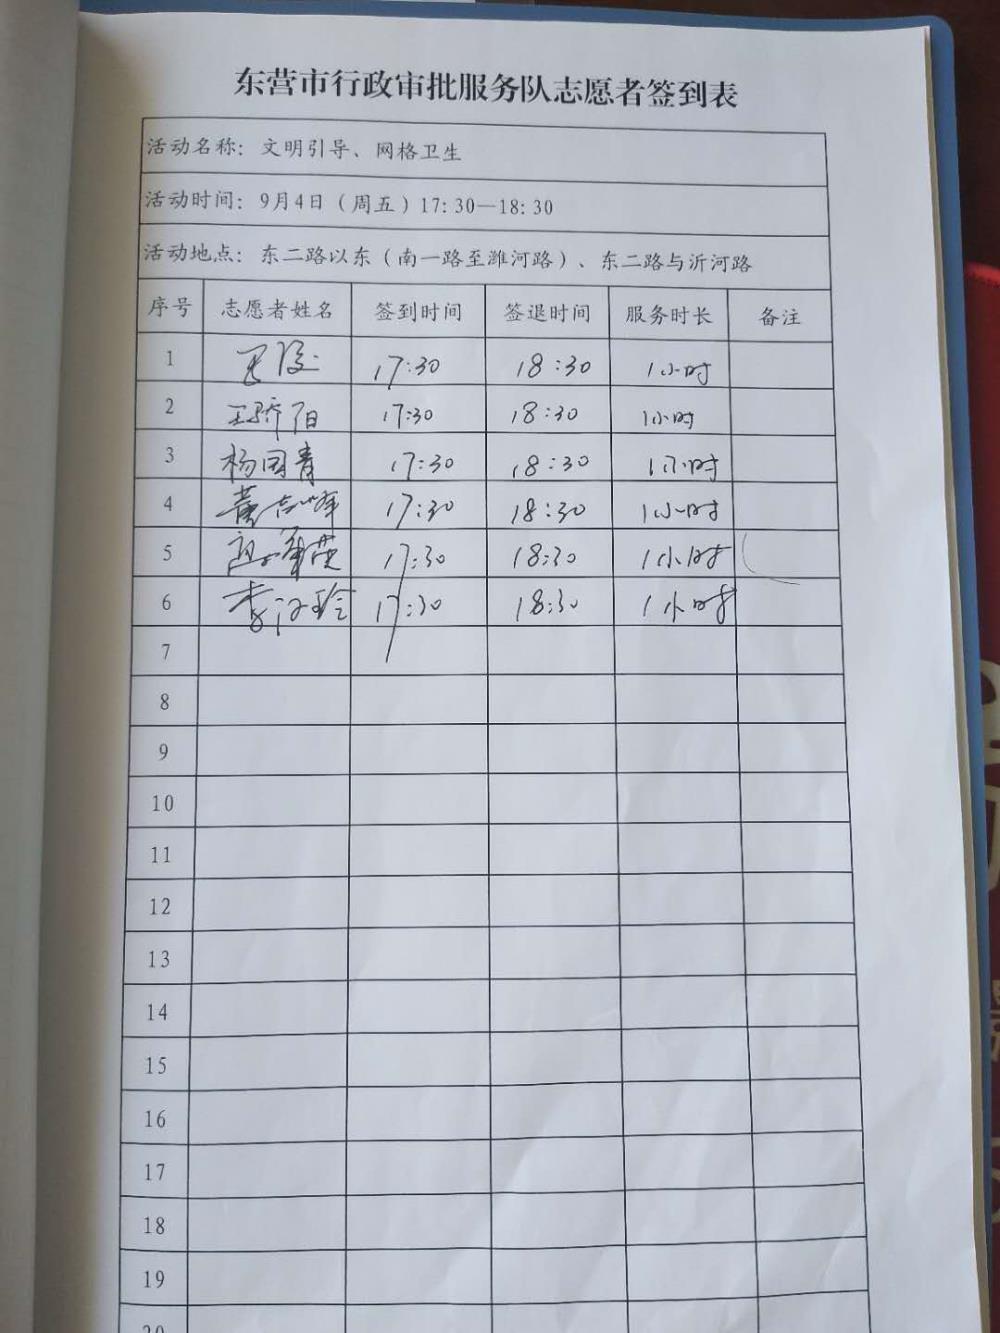 东营市行政审批服务队志愿者签到表
活动名称：文明引导、网格卫生
活动时间：9月4日（周五）17:30—18:30
活动地点：东二路以东（南一路至潍河路）、东二路与沂河路
序号 志愿者姓名 签到时间 签退时间 服务时长 备注
1 17:30 18:30 1小时
2 王骄阳 17:30 18:30 1小时
3 杨国青 17:30 18:30 1小时
4 黄志峰 17:30 18:30 1小时
5 17:30 18:30 1小时
6 17:30 18:30 1小时
7
8
9
10
11
12
13
14
15
16
17
18
19
20